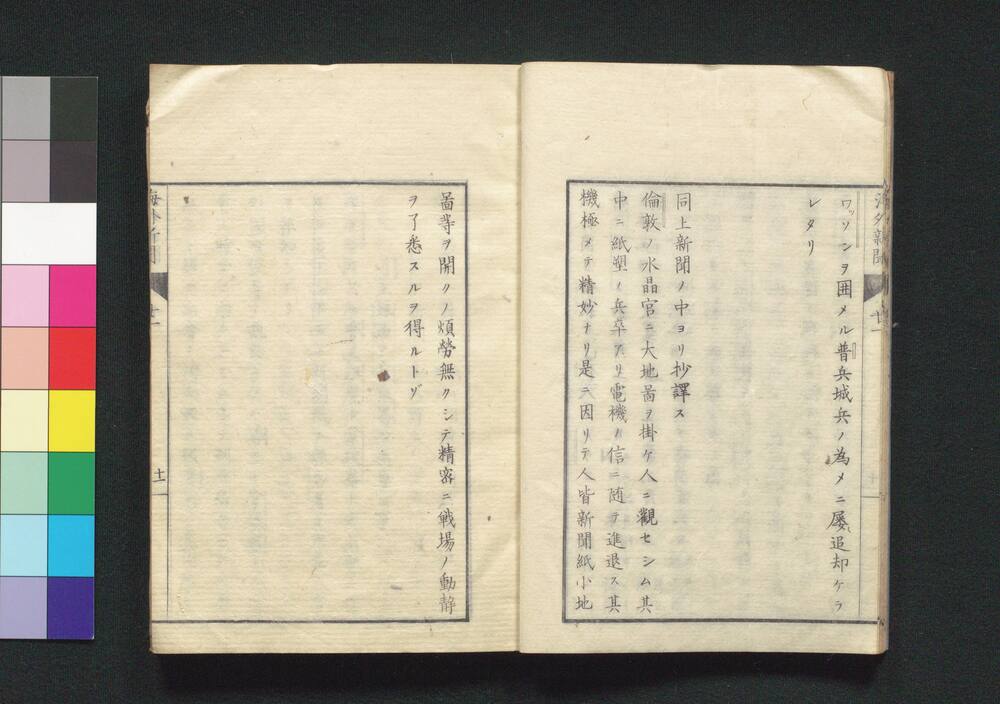 ワッソンヲ囲メル普兵城兵ノ為メニ屡追却ケラ
レタリ
同上新聞ノ中ヨリ抄譯ス
倫敦ノ水晶宮ニ大地啚ヲ掛ケ人ニ觀セシム其
中ニ紙塑ノ兵卒アリ電機ノ信ニ随テ進退ス其
機極メテ精妙ナリ是ニ因リテ人皆新聞紙小地
啚等ヲ開クノ煩勞無クシテ精密ニ戦場ノ動静
ヲ了悉スルヲ得ルトゾ
海外新聞
廿一
十一